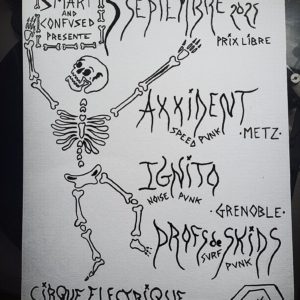 SMART
AND
CONFUSED
PRESENTE
5 SEPTEMBRE 2025
PRIX LIBRE
AXXIDENT
SPEED PUNK
· METZ ·
IGNITO
NOISE PUNK
· GRENOBLE ·
PROFS de SKIDS
SURF PUNK
CIRQUE ELECTRIQUE